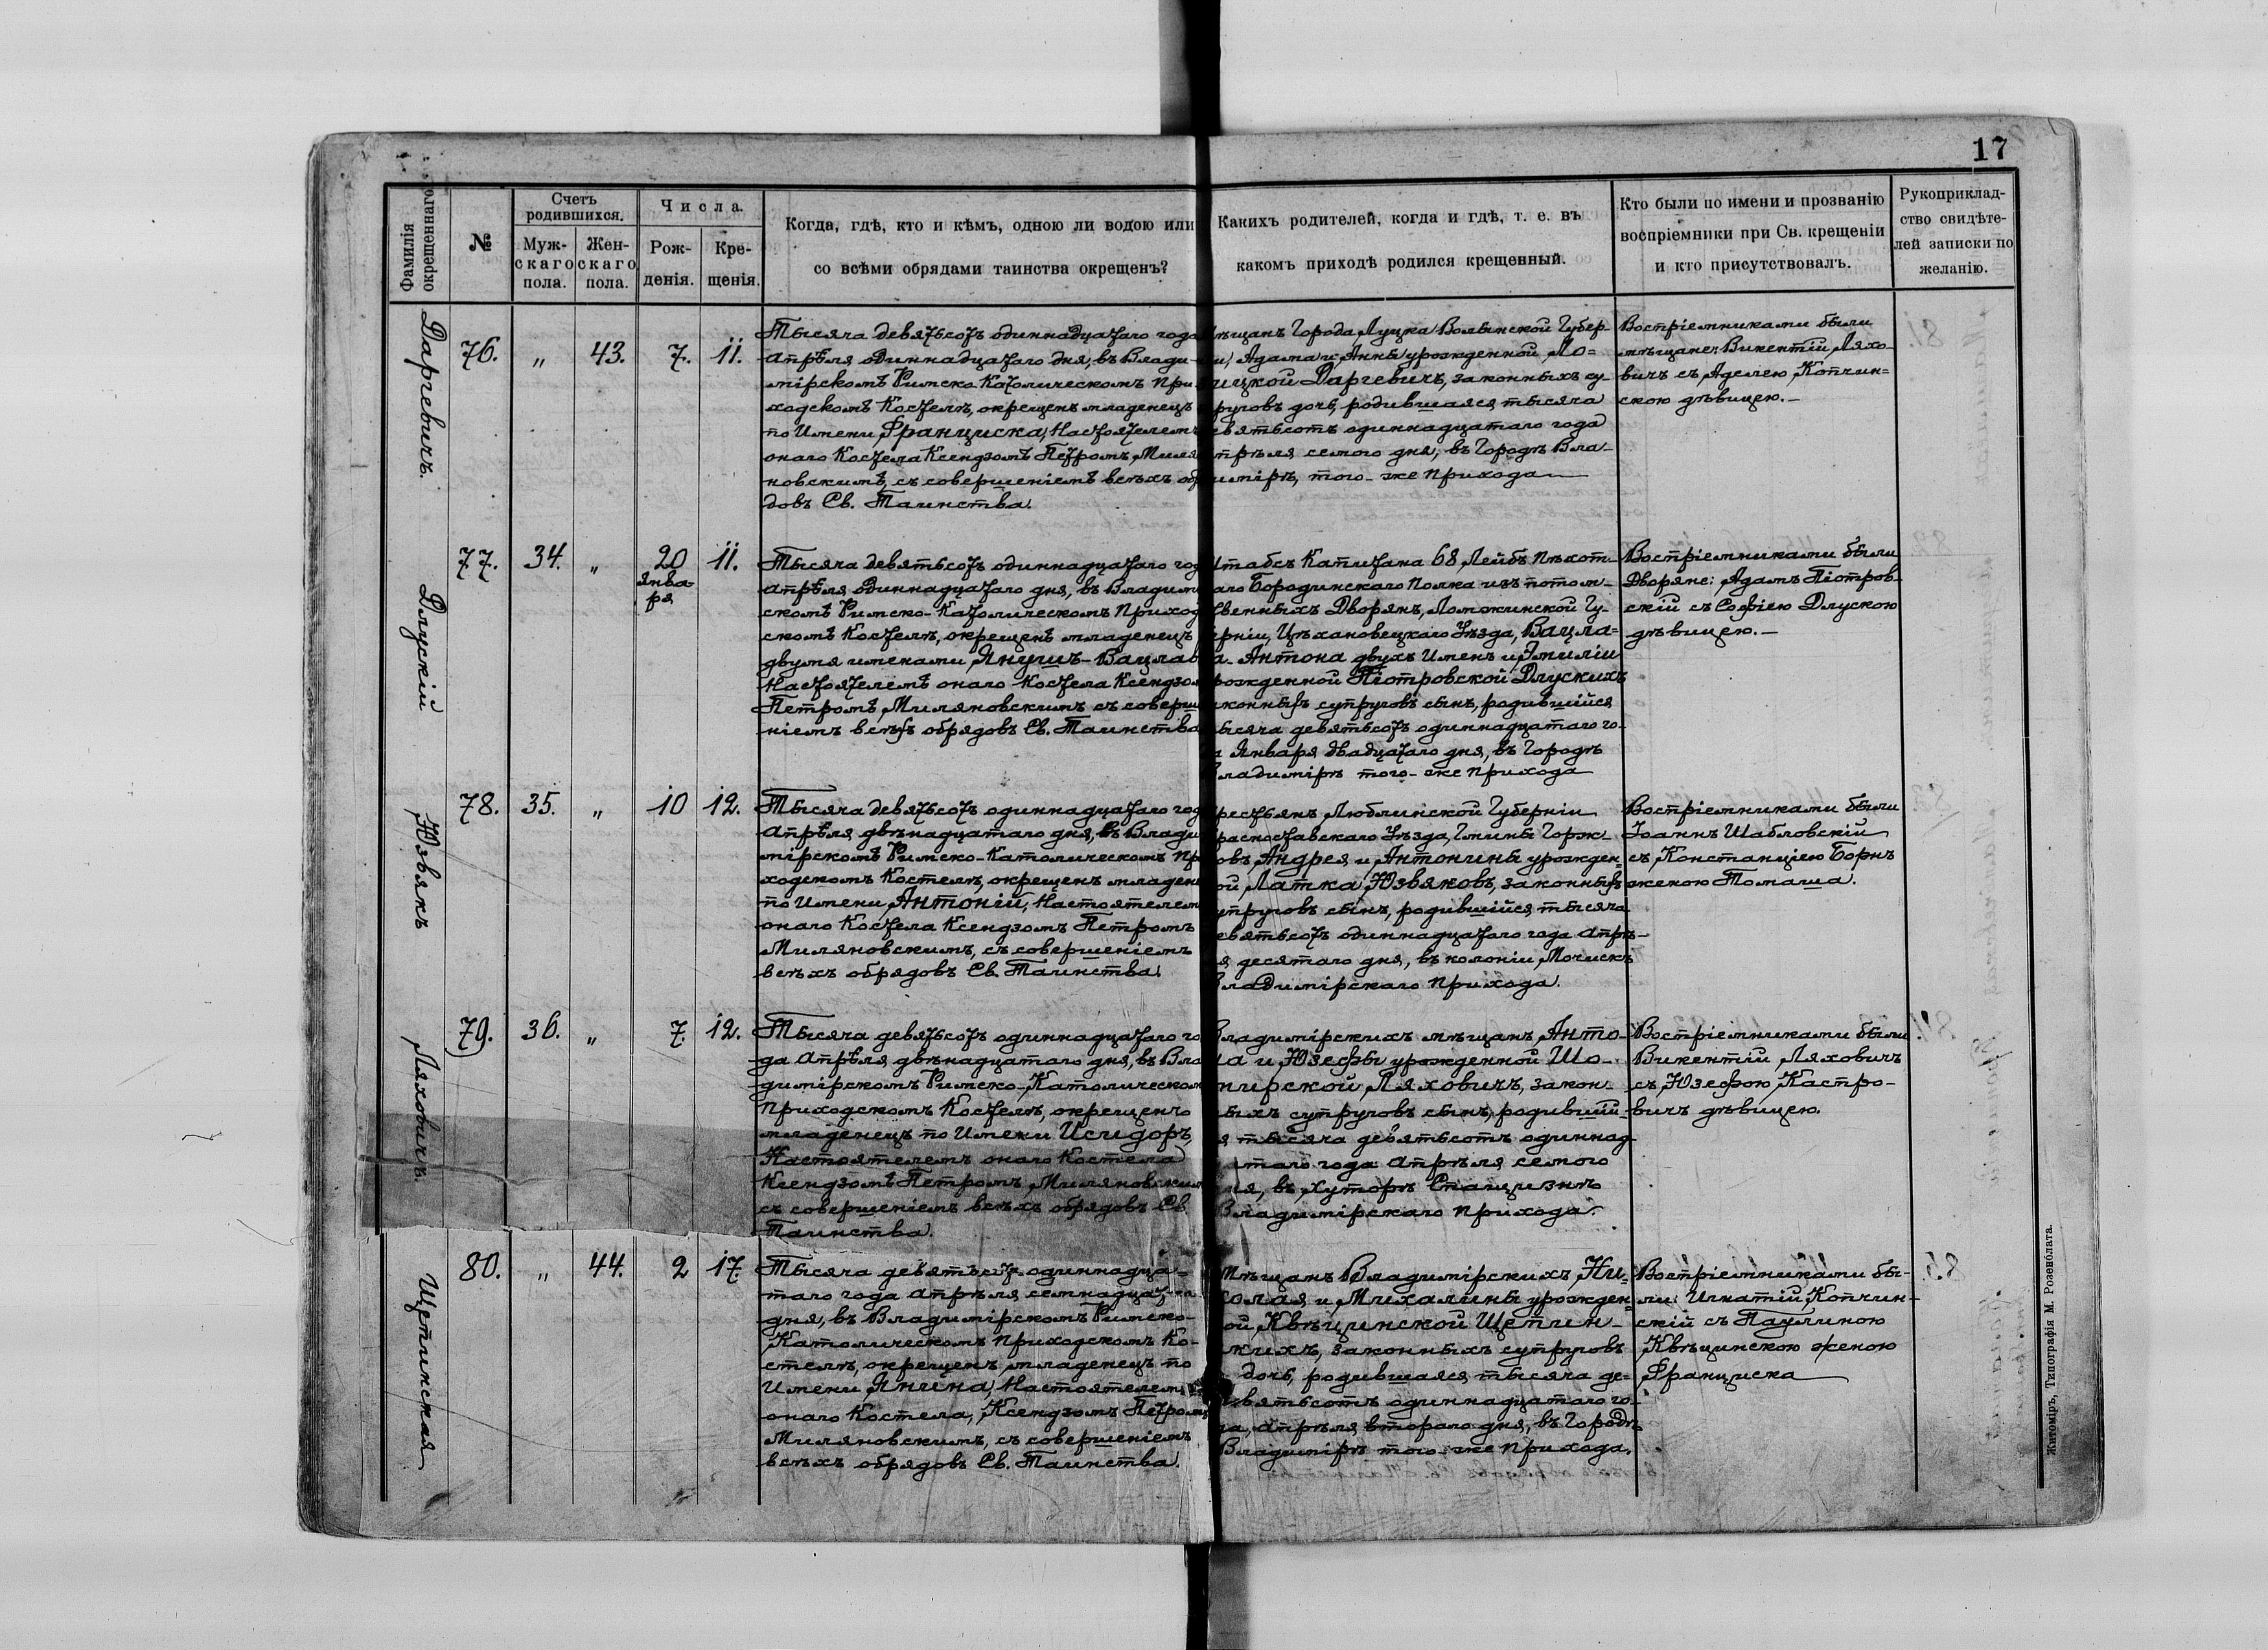 17
Фамилія
окрещеннаго
№
Счетъ
родившихся.
Муж-
скаго
пола.
Жен-
скаго
пола.
Числа.
Рож-
денія.
Кре-
щенія.
Когда, гдѣ, кто и кѣмъ, одною ли водою или
со всѣми обрядами таинства окрещенъ?
Какихъ родителей, когда и гдѣ, т. е. въ
какомъ приходѣ родился крещенный.
Кто были по имени и прозванію
воспріемники при Св. крещеніи
и кто присутствовалъ.
Рукоприклад-
ство свидѣте-
лей записки по
желанію.
Даргевичъ.
76.
„
43.
7.
11.
Тысяча девятьсотъ одиннадцатаго года
Апрѣля одиннадцатаго дня, въ Влади-
мірскомъ Римско Католическомъ при
ходскомъ Костелѣ, окрещенъ младенецъ
по Имени Франциска, Настоятелемъ
онаго Костела Ксендзомъ Петромъ Миля
новскимъ, съ совершеніемъ всѣхъ об
довъ Св. Таинства.
ѣщанъ Города Луцка Волынской Губер-
и, Адама и Анны урожденной Ло=
ицкой Даргевичъ, законныхъ су-
руговъ дочь, родившаяся тысяча
евятьсотъ одиннадцатаго года
прѣля семого дня, въ Городѣ Вла-
иміръ, того-же прихода
Воспріемниками были
мѣщане: Викентій Ляхо-
вичъ съ Аделею Копчин=
скою дѣвицею.-
Длускій
77.
34.
„
20
Янва-
ря
11.
Тысяча девятьсотъ одиннадцатаго год
Апрѣля одиннадцатаго дня, въ Владим
скомъ Римско-Католическомъ Приход
скомъ Костелѣ, окрещенъ младенецъ
двумя именами Янушъ-Вацлав
Настоятелемъ онаго Костела Ксендзом
Петромъ Миляновскимъ съ соверш
ніемъ всѣхъ обрядовъ Св. Таинства
Штабсъ Капитана 68 Лейбъ Пѣхот-
аго Бородинскаго Полка изъ потом-
венныхъ Дворянъ, Ломжинской Гу-
ерніи, Цѣхановецкаго Уѣзда, Вацла=
а-Антона двухъ Именъ и Эмиліи
рожденной Піотровской Длускихъ
конныхъ супруговъ сынъ, родившійся
ысяча девятьсотъ одиннадцатаго го-
а Января двадцатаго дня, въ Городѣ
Владиміръ того-же прихода
Воспріемниками были
Дворяне: Адамъ Піотров-
скій съ Софіею Длускою
дѣвицею.-
Юзвякъ
78.
35.
„
10
12.
Тысяча девятьсотъ одиннадцатаго год
Апрѣля двѣнадцатаго дня, въ Влади
мірскомъ Римско-Католическомъ пр
ходскомъ Костелѣ, окрещенъ младене
по Имени Антоній, Настоятелем
онаго Костела Ксендзомъ Петромъ
Миляновскимъ, съ совершеніемъ
всѣхъ обрядовъ Св. Таинства.
рестьянъ Люблинской Губерніи
расноставскаго Уѣзда, Гмины Горж-
овъ, Андрея и Антонины урожден
ой Латка Юзвяковъ, законныхъ
упруговъ сынъ, родившійся тысяча
евятьсотъ одиннадцатаго года Апрѣ-
я десятаго дня, въ колоніи Мочискъ
Владимірскаго прихода.
Воспріемниками были
Іоаннъ Шабловскій
съ Констанціею Борнъ
женою Томаша.
Ляховичъ.
79.
36.
„
7.
12.
Тысяча девятьсотъ одиннадцатаго го
да Апрѣля двѣнадцатаго дня, въ Вла
димірскомъ Римско-Католическом
приходскомъ Костелѣ, окрещенъ
младенецъ по Имени Исидоръ,
Настоятелемъ онаго Костела
Ксендзомъ Петромъ Миляновским
съ совершеніемъ всѣхъ обрядовъ Св.
Таинства.
Владимірскихъ мѣщанъ, Анто-
на и Юзефы урожденной Шо-
пирской Ляховичъ, закон-
ныхъ супруговъ сынъ, родившій-
я тысяча девятьсотъ одиннад-
атаго года Апрѣля семого
ня, въ хуторѣ
Владимірскаго прихода.
Воспріемниками были
Викентій Ляховичъ
съ Юзефою Кастро-
вичъ дѣвицею.
Щепинская
80.
„
44.
2
17.
Тысяча девятьсотъ одиннадца-
таго года Апрѣля семнадцат го
дня, въ Владимірскомъ Римско-
Католическомъ приходскомъ Ко-
стелѣ, окрещенъ младенецъ по
Имени Янина, Настоятелем
онаго Костела, Ксендзомъ Петромъ
Миляновскимъ, съ совершеніемъ
всѣхъ обрядовъ Св. Таинства.
Мѣщанъ Владимірскихъ Ни-
колая и Михалины урожден=
ой Квѣцинской Щепин-
кихъ, законныхъ супруговъ
дочь, родившаяся тысяча де=
вятьсотъ одиннадцатаго го-
да, Апрѣля второго дня, въ Городѣ
Владиміръ того-же прихода.
Воспріемниками бы-
ли: Игнатій Копчин-
скій съ Паулиною
Квѣцинскою женою
Франциска
Житоміръ, Типографія М. Розенблата.